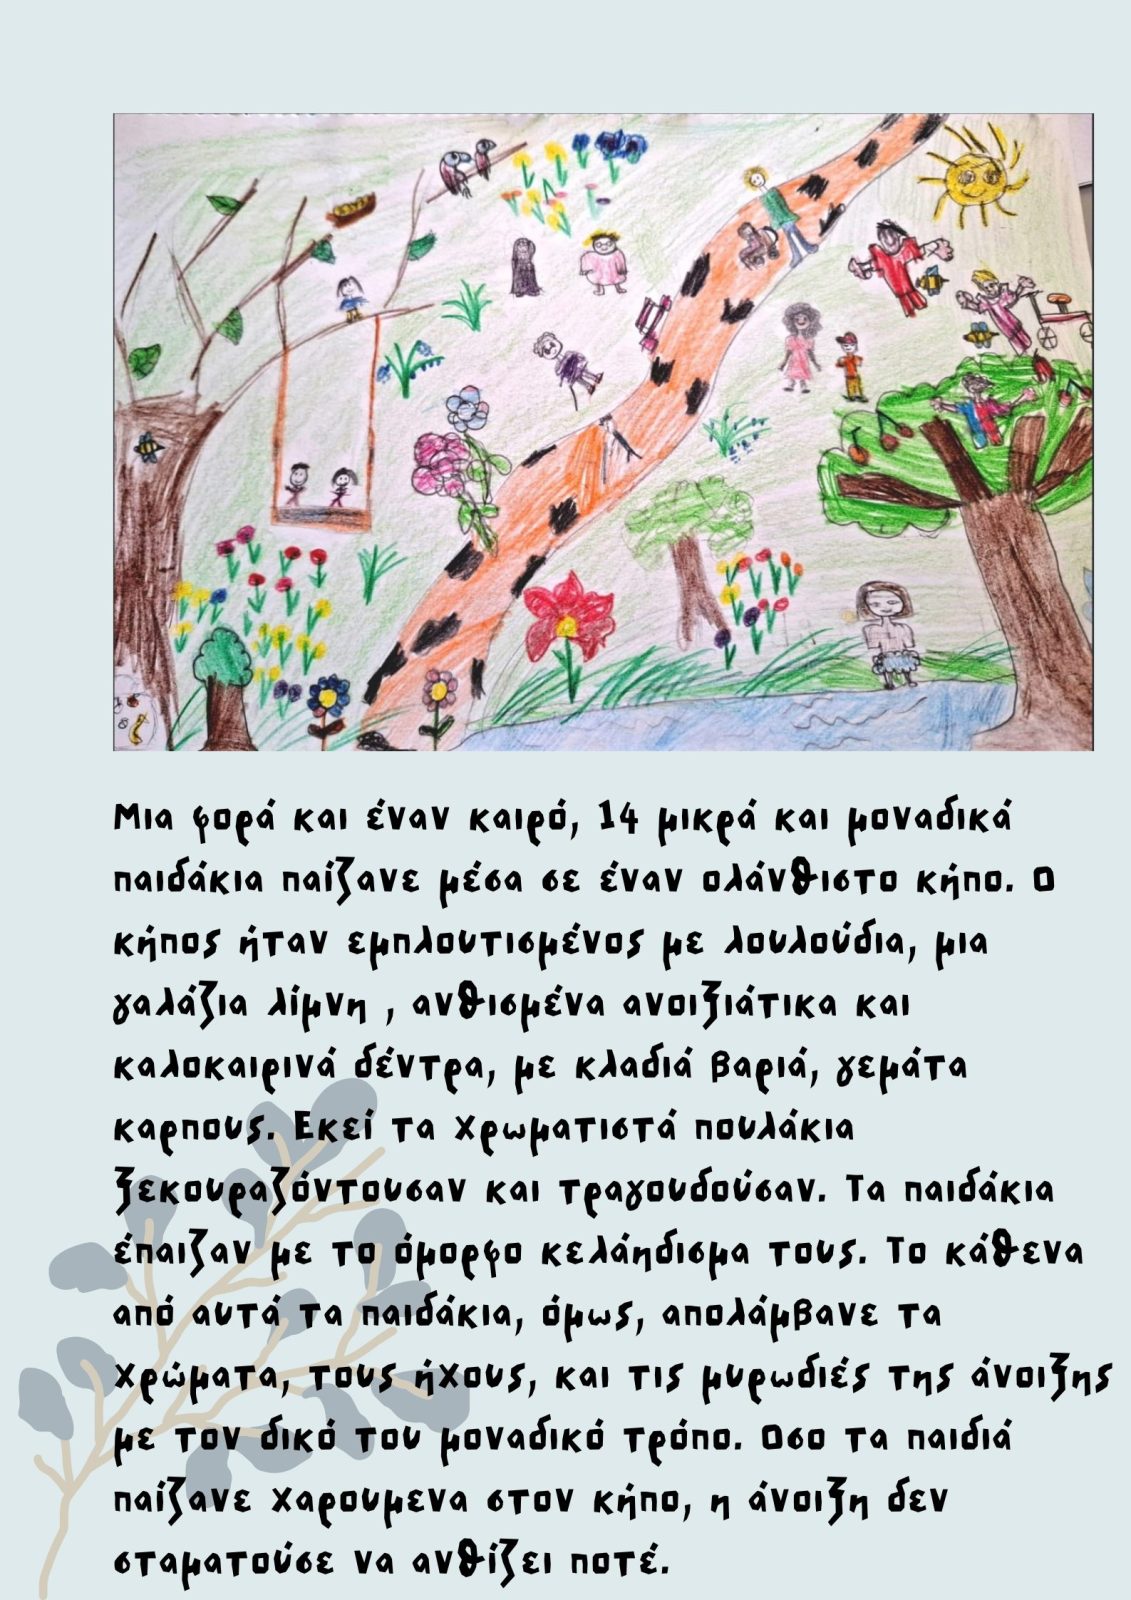 Μια φορά και έναν καιρό, 14 μικρά και μοναδικά
παιδάκια παίζανε μέσα σε έναν ολάνθιστο κήπο. Ο
κήπος ήταν εμπλουτισμένος με λουλούδια, μια
γαλάζια λίμνη , ανθισμένα ανοιξιάτικα και
καλοκαιρινά δέντρα, με κλαδιά βαριά, γεμάτα
καρπους. Εκεί τα χρωματιστά πουλάκια
ξεκουραζόντουσαν και τραγουδούσαν. Τα παιδάκια
έπαιζαν με το όμορφο κελάηδισμα τους. Το κάθενα
από αυτά τα παιδάκια, όμως, απολάμβανε τα
χρώματα, τους ήχους, και τις μυρωδιές της άνοιξης
με τον δικό του μοναδικό τρόπο. Οσο τα παιδιά
παίζανε χαρουμενα στον κήπο, η άνοιξη δεν
σταματούσε να ανθίζει ποτέ.